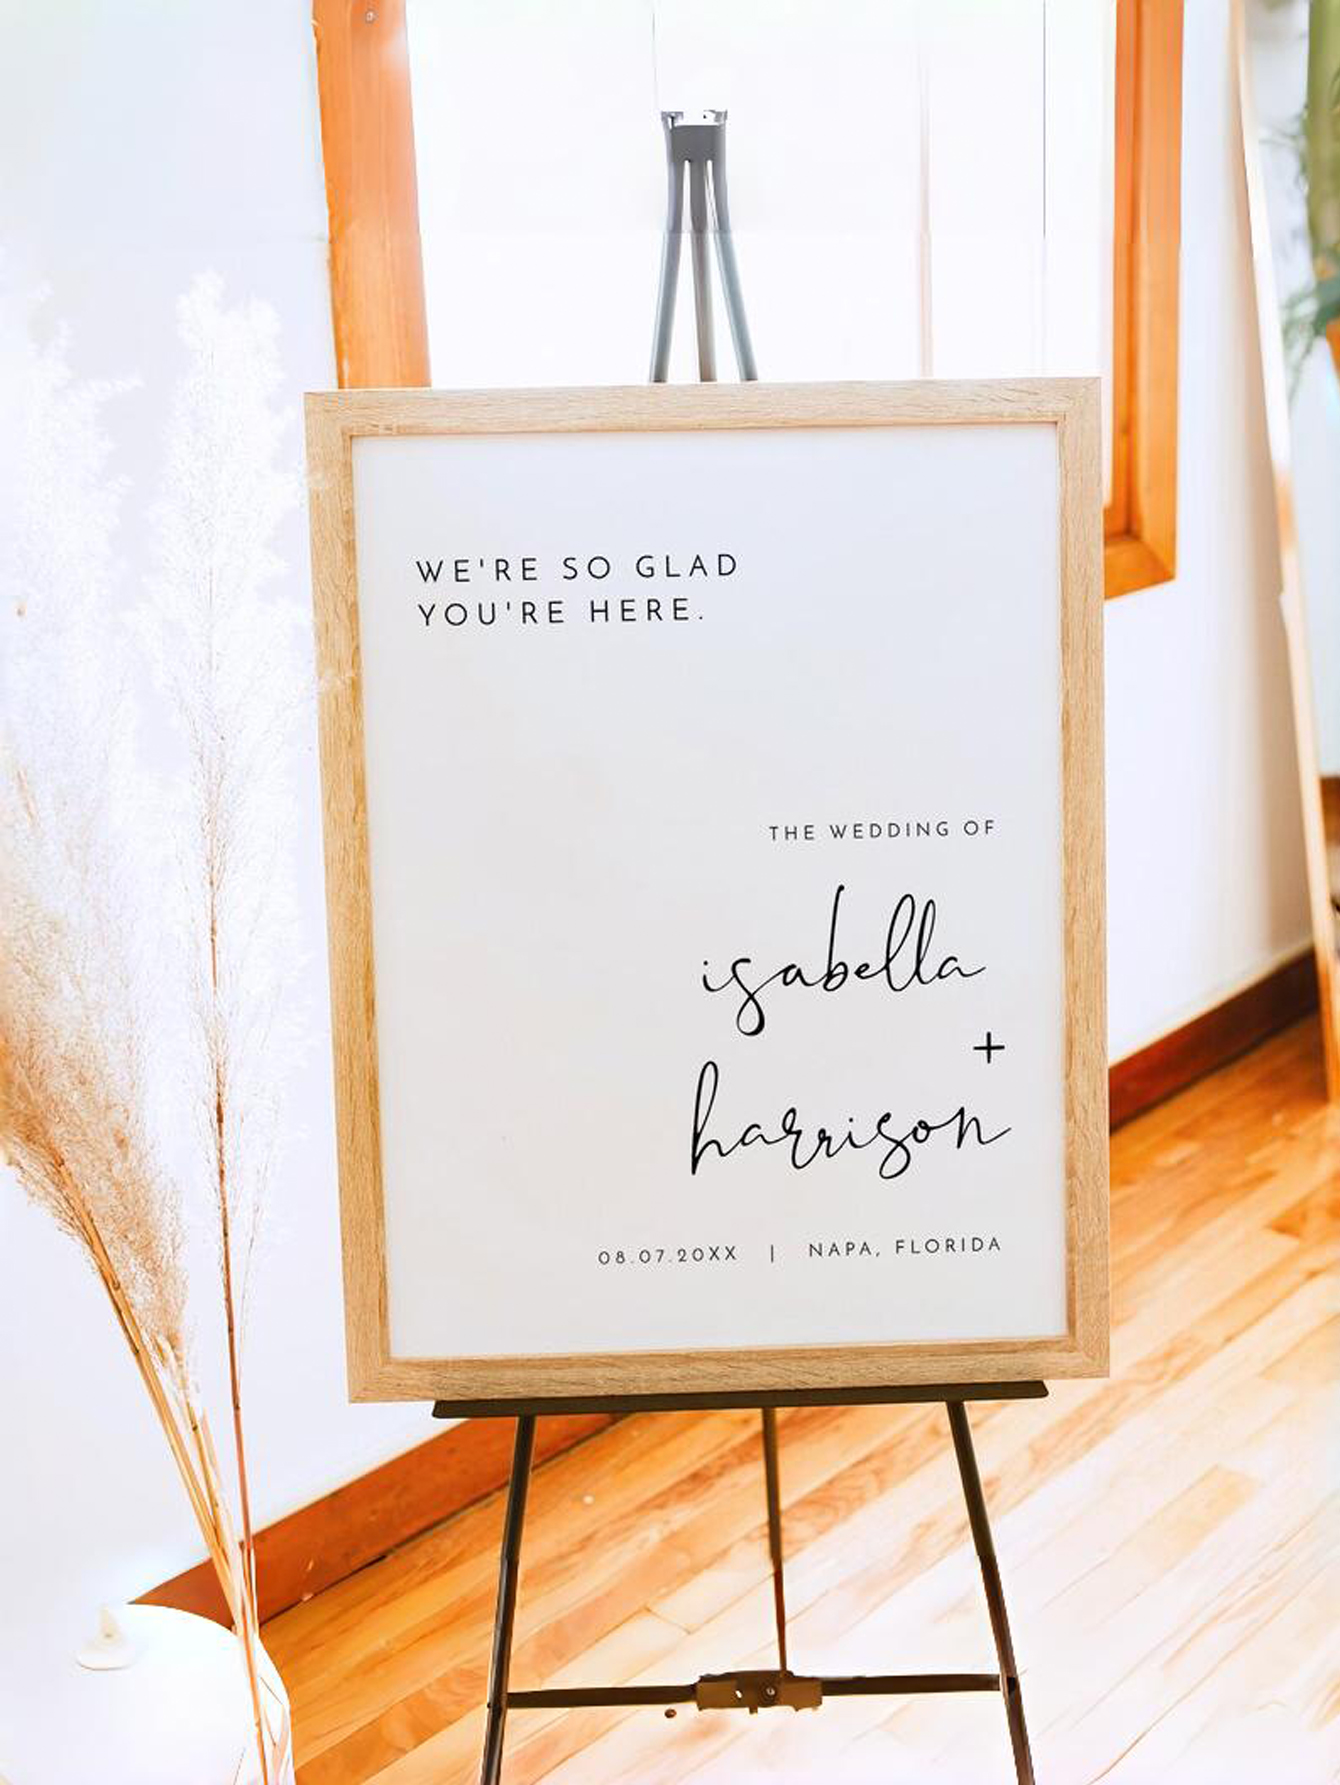 WE'RE SO GLAD
YOU'RE HERE.
THE WEDDING OF
isabella
+
harrison
08.07.20XX | NAPA, FLORIDA